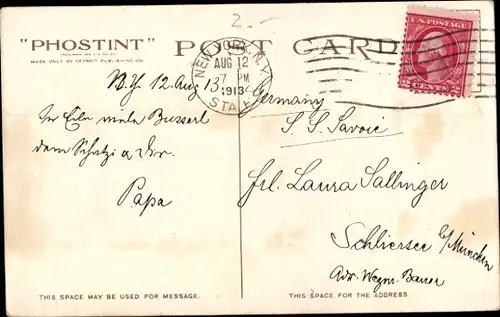 2 -
"PHOSTINT" POST CARD
MADE ONLY BY DETROIT PUBLISHING CO.
NEW YORK, N.Y.
AUG 12
7 PM
1913
STA.
U.S. POSTAGE
2 CENTS 2
N.Y. 12. Aug 13.
In Eile viele Busserl
dem Schatzi a. Dir.
Papa
Germany
S.S. Savoie
Frl. Laura Sallinger
Schliersee
b/München
Adr. Bauer
THIS SPACE MAY BE USED FOR MESSAGE.
THIS SPACE IS FOR THE ADDRESS